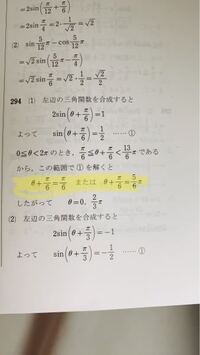 =2sin(π/12+π/6)
=2sin π/4=2・1/√2=√2
(2) sin 5/12 π−cos 5/12 π
=√2 sin(5/12 π−π/4)
=√2 sin π/6=√2・1/2=√2/2
294 (1) 左辺の三角関数を合成すると
2sin(θ+π/6)=1
よって sin(θ+π/6)=1/2 ……①
0≦θ<2π のとき，π/6≦θ+π/6<13/6 π である
から，この範囲で①を解くと
θ+π/6=π/6 または θ+π/6=5/6 π
したがって θ=0, 2/3 π
(2) 左辺の三角関数を合成すると
2sin(θ+π/3)=−1
よって sin(θ+π/3)=−1/2 ……①